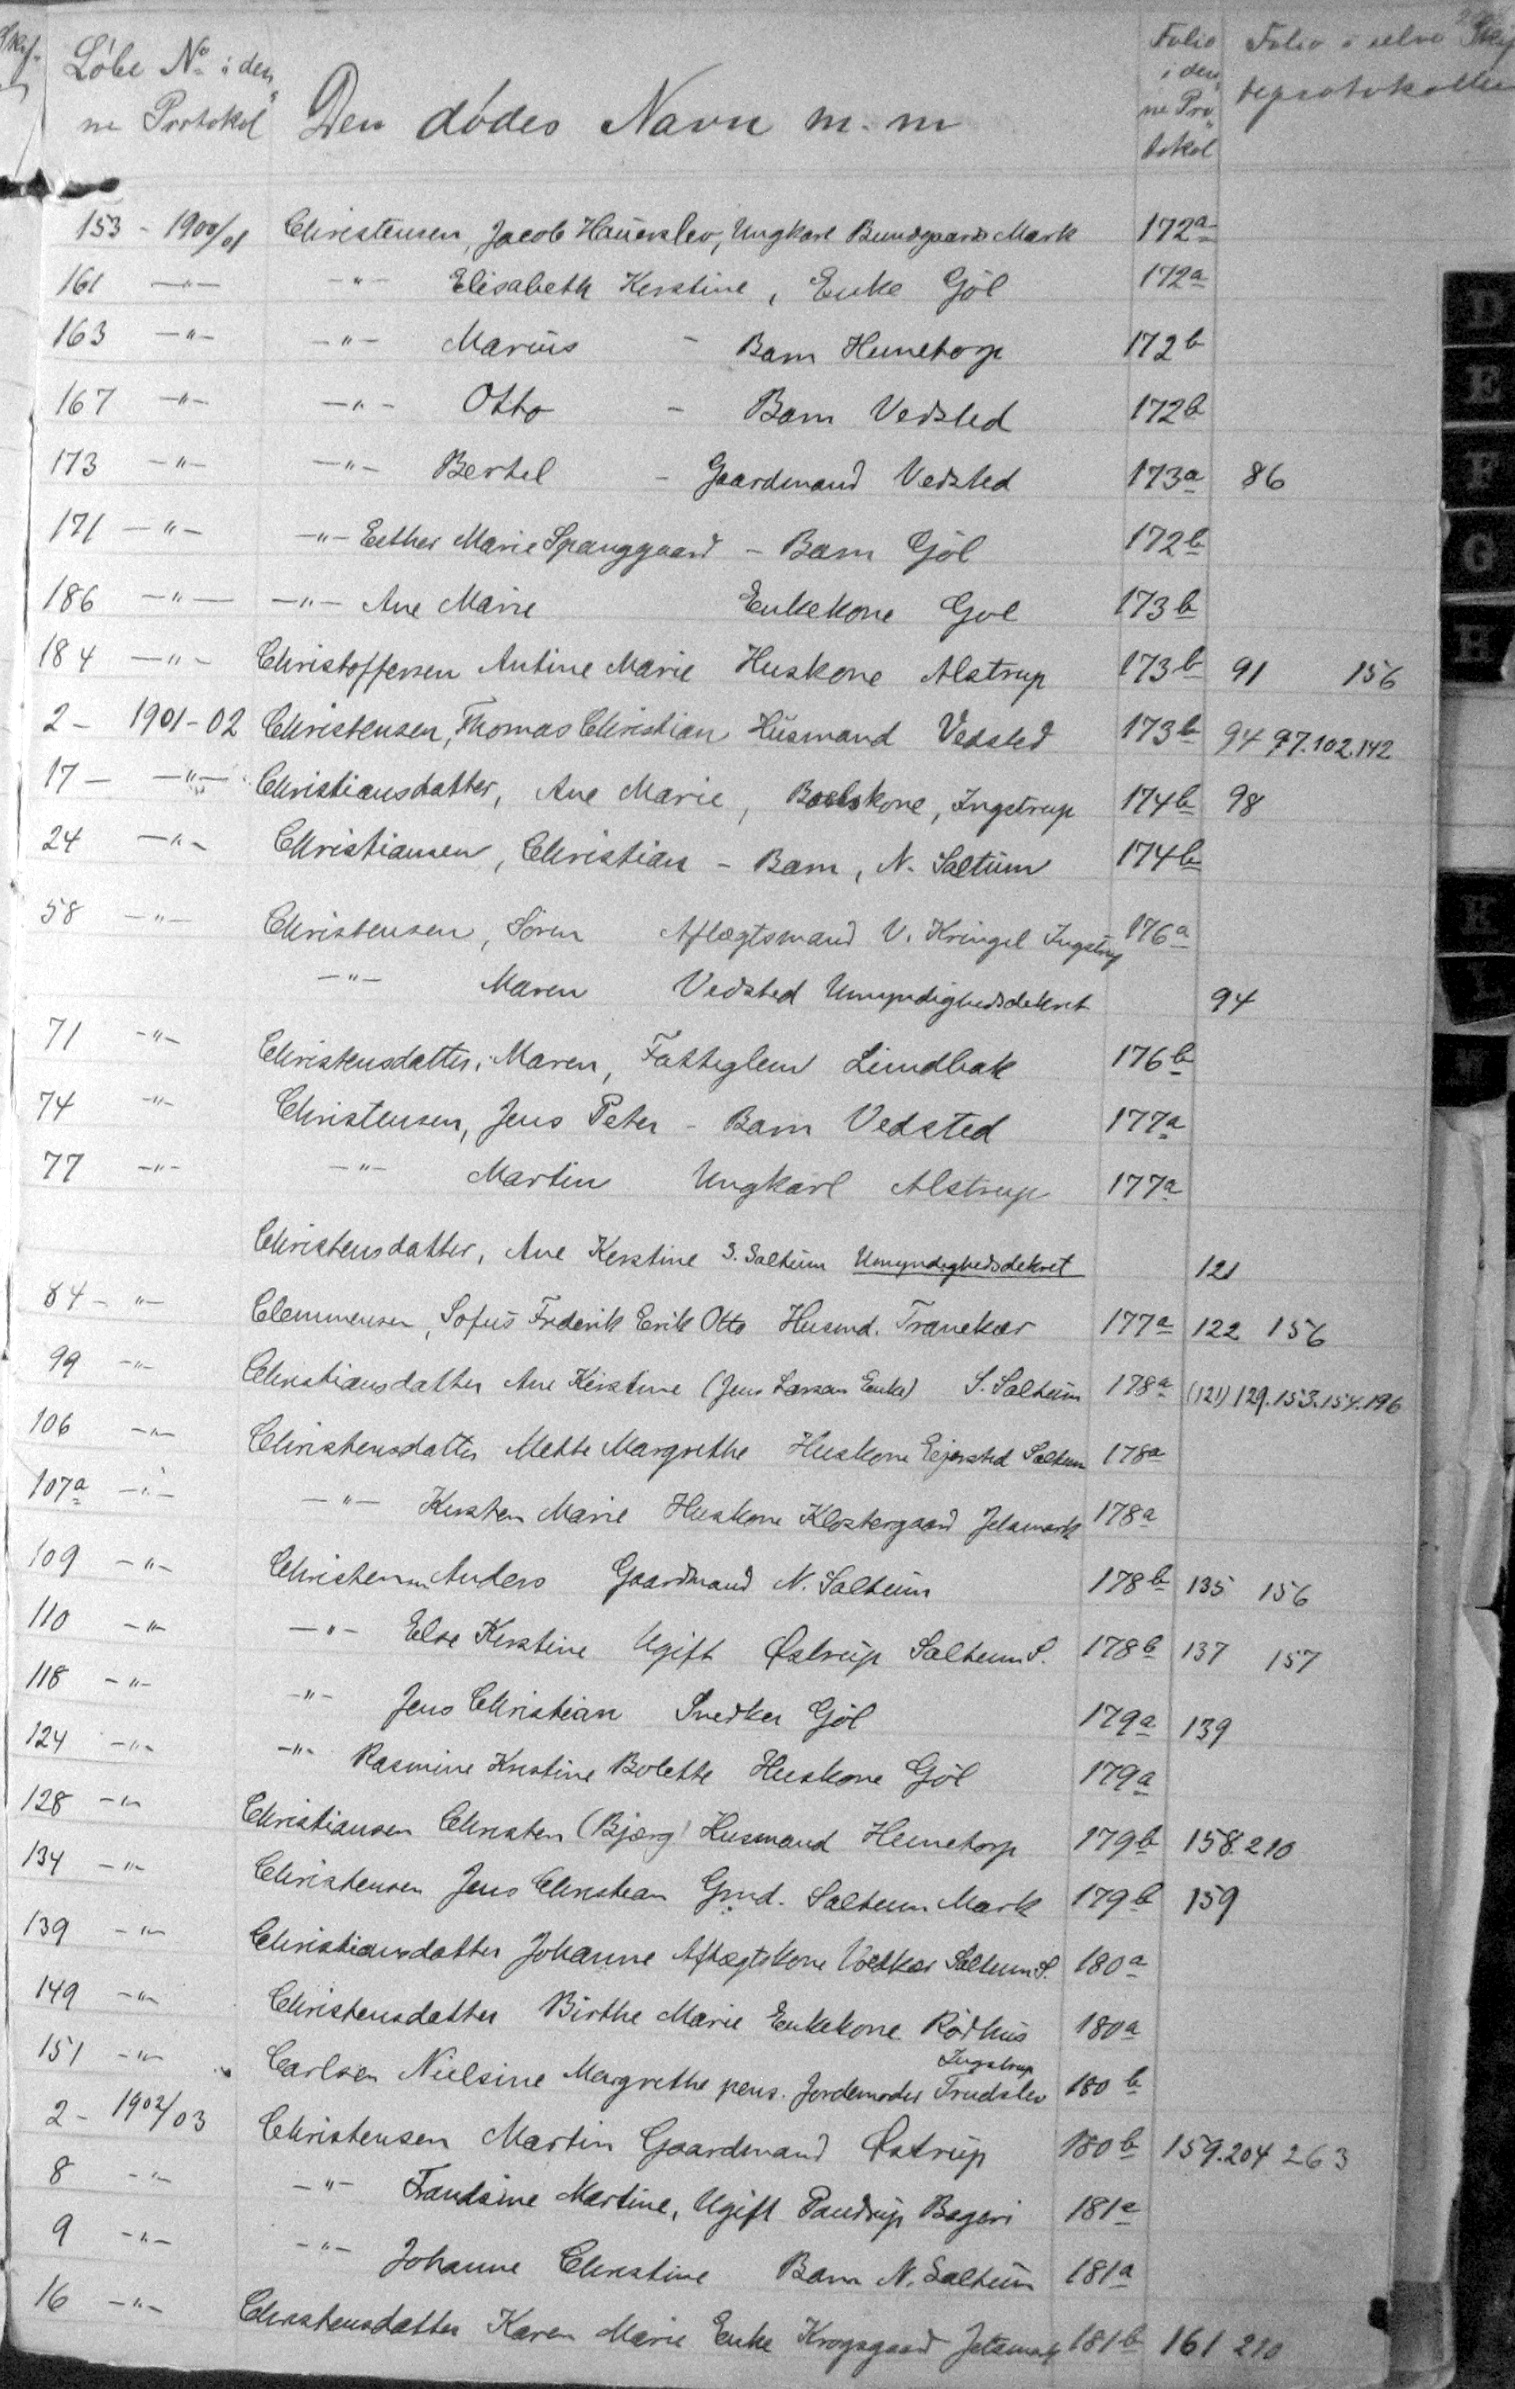 Løbe No i den
ne Protokol
Den dødes Navn m. m
Folio
i den
ne Pro
tokol
Folio i selve Skif
teprotokollen
153 - 1900/01 Christensen, Jacob Hauerslev, Ungkarl Bundgaards Mark 172a
161 -"- -"- Elisabeth Kerstine, Enke Gjöl 172a
163 -"- -"- Marius - Barn Hunetorp 172b
167 -"- -"- Otto - Barn Vedsted 172b
173 -"- -"- Bertel - Gaardmand Vedsted 173a 86
171 -"- -"- Esther Marie Spanggaard - Barn Gjöl 172b
186 -"- -"- Ane Marie Enkekone Gjöl 173b
184 -"- Christoffersen Antine Marie Huskone Alstrup 173b 91 156
2 - 1901-02 Christensen, Thomas Christian Husmand Vedsted 173b 94 97.102.142
17 - -"- Christiansdatter, Ane Marie, Boelskone, Ingstrup 174b 98
24 -"- Christiansen, Christian - Barn, N. Saltum 174b
58 -"- Christensen, Sören Aflægtsmand V. Kringel Ingstrup 176a
-"- Maren Vedsted Umyndighedsdekret 94
71 -"- Christensdatter, Maren, Fattiglem Limdbak 176b
74 -"- Christensen, Jens Peter - Barn Vedsted 177a
77 -"- -"- Martin Ungkarl Alstrup 177a
Christensdatter, Ane Kerstine S. Saltum Umyndighedsdekret 121
84 - -"- Clemmensen, Sofus Frederik Erik Otto Husmd. Tranekær 177a 122 156
99 -"- Christiansdatter Ane Kirstine (Jens Larsens Enke) S. Saltum 178a (121) 129.153.154.196
106 -"- Christensdatter Mette Margrethe Huskone Ejersted Saltum 178a
107a -"- -"- Kirsten Marie Huskone Klostergaard Jetsmark 178a
109 -"- Christensen Anders Gaardmand N. Saltum 178b 135 156
110 -"- -"- Else Kirstine Ugift Østrup Saltum S. 178b 137 157
118 -"- -"- Jens Christian Snedker Gjöl 179a 139
124 -"- -"- Rasmine Kristine Bolette Huskone Gjöl 179a
128 -"- Christiansen Christen (Bjerg) Husmand Hunetorp 179b 158.210
134 -"- Christensen Jens Christian Gmd. Saltum Mark 179b 159
139 -"- Christiansdatter Johanne Aflægtskone Voldkær Saltum S. 180a
149 -"- Christensdatter Birthe Marie Enkekone Rödhus 180a
151 -"- Carlsen Nielsine Margrethe pens. Jordemoder Trudslev Ingstrup 180b
2 - 1902/03 Christensen Martin Gaardmand Østrup 180b 159.204 263
8 -"- -"- Frandsine Martine, Ugift Pandrup Bageri 181a
9 -"- -"- Johanne Christine Barn N. Saltum 181a
16 -"- Christensdatter Karen Marie Enke Krogsgaard Jetsmark 181b 161 210
D
E
F
G
H
K
L
M